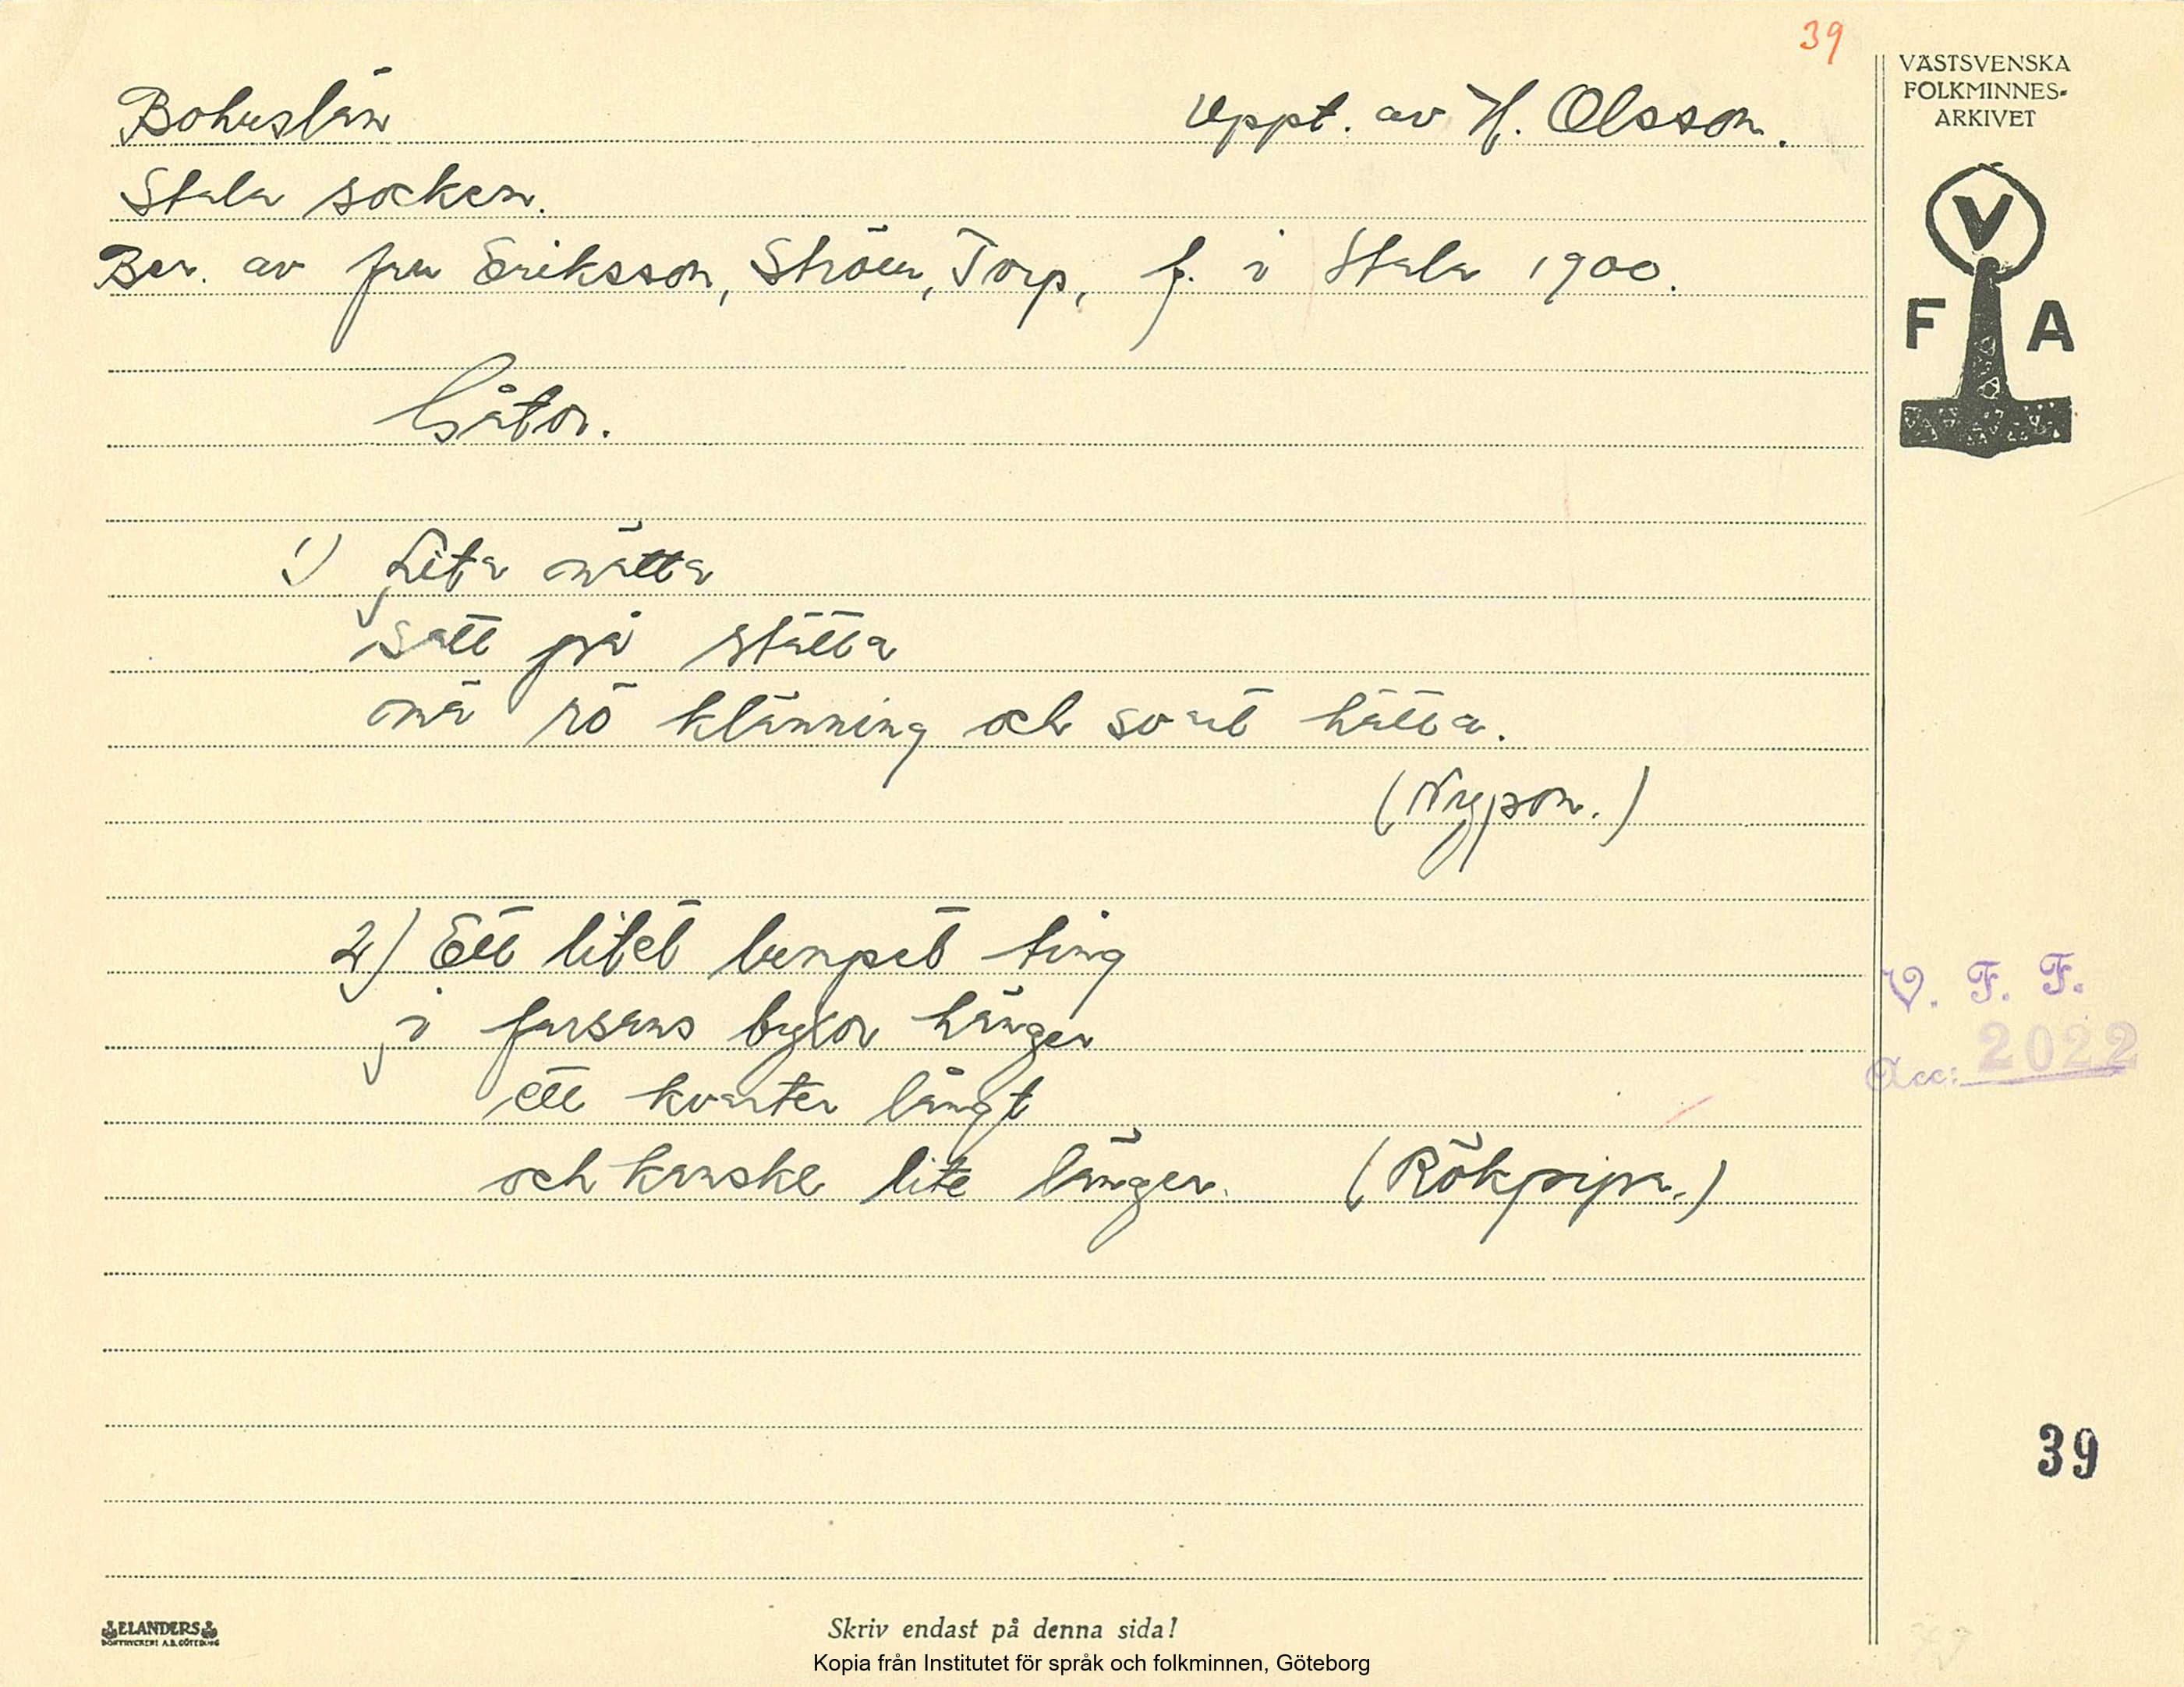 39
VÄSTSVENSKA
FOLKMINNES-
ARKIVET
V
F A
Bohuslän
Uppt. av H. Olsson.
Stala socken.
Ber. av fru Eriksson, Torp, f. i Stala 1900.
Gåtor.
1) Lita nätta
satt på stätta
mä rö klänning och svart hätta.
(Nypon.)
2) Ett litet lumpet ting
i farsans byxor hänger
ett kvarter långt
och kanske lite länger. (Rökpipa.)
V. F. F.
Acc: 2022
39
ELANDERS
BOKTRYCKERI A.B. GÖTEBORG
Skriv endast på denna sida!
Kopia från Institutet för språk och folkminnen, Göteborg